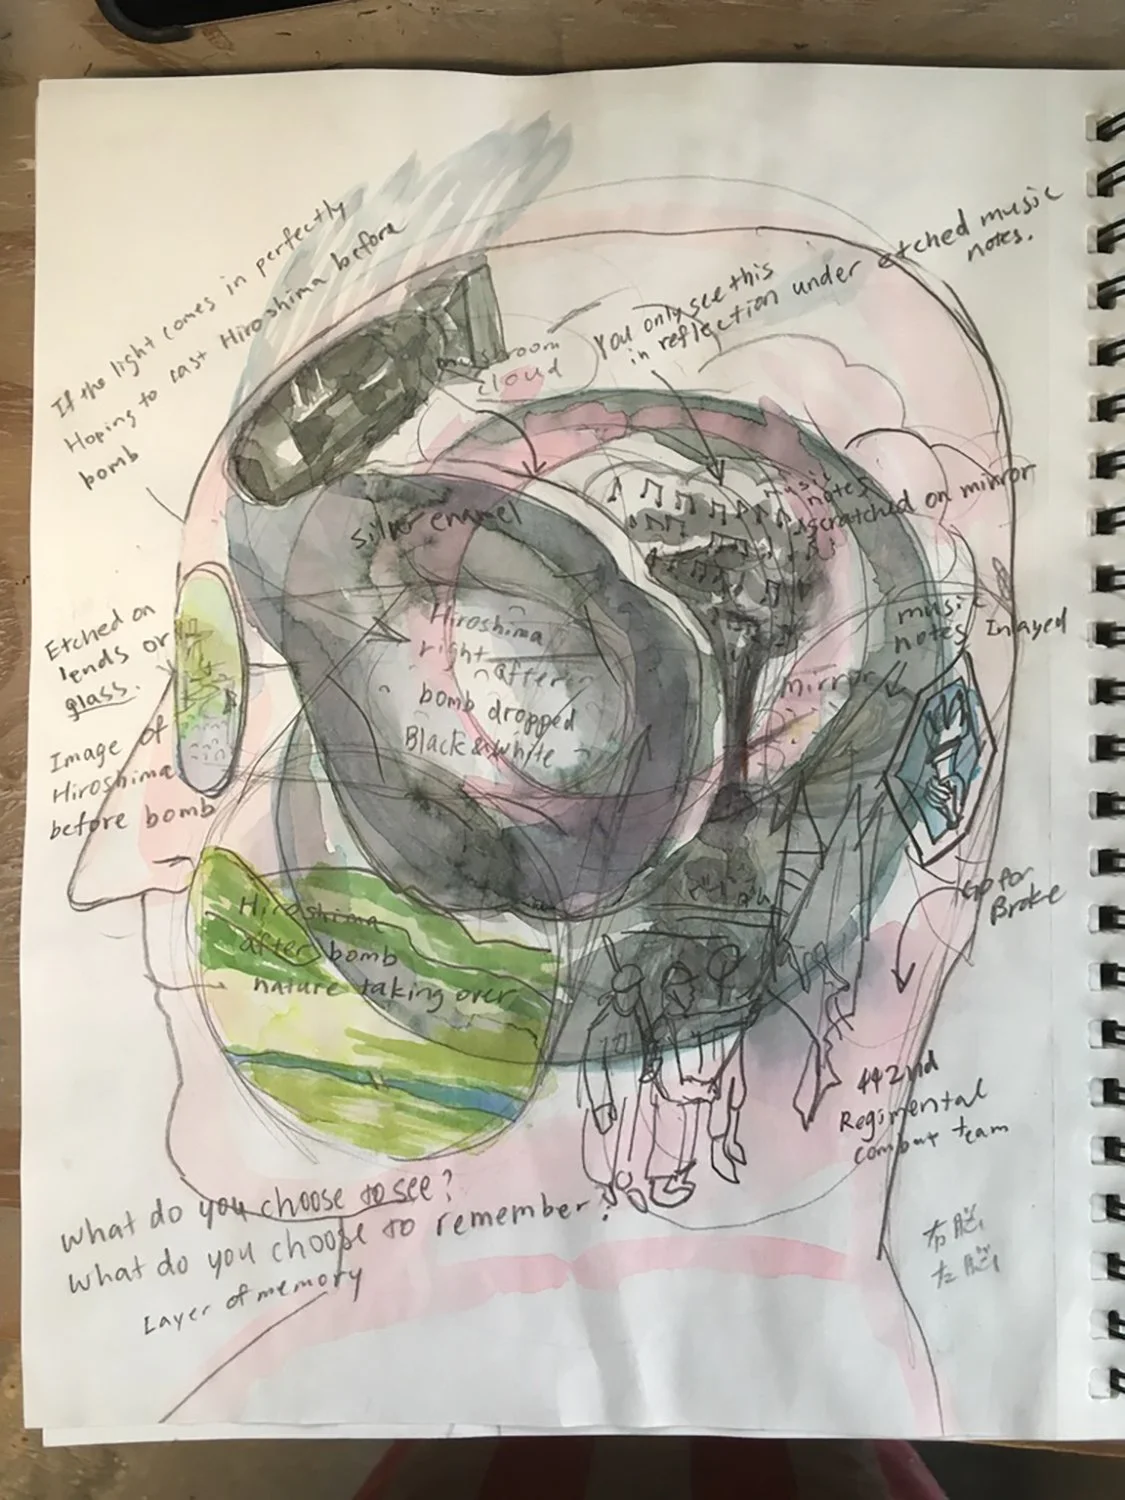 If the light comes in perfectly
Hoping to cast Hiroshima before
bomb
mushroom
cloud
You only see this
in reflection under etched music
notes.
silver enamel
music
notes
scratched on mirror
Etched on
lends or
glass.
Image of
Hiroshima
before bomb
Hiroshima
right after
bomb dropped
Black & white
music
notes Inlayed
mirror
Go for
Broke
Hiroshima
after bomb
nature taking over
442nd
Regimental
combat team
What do you choose to see?
What do you choose to remember?
Layer of memory
右脳
左脳